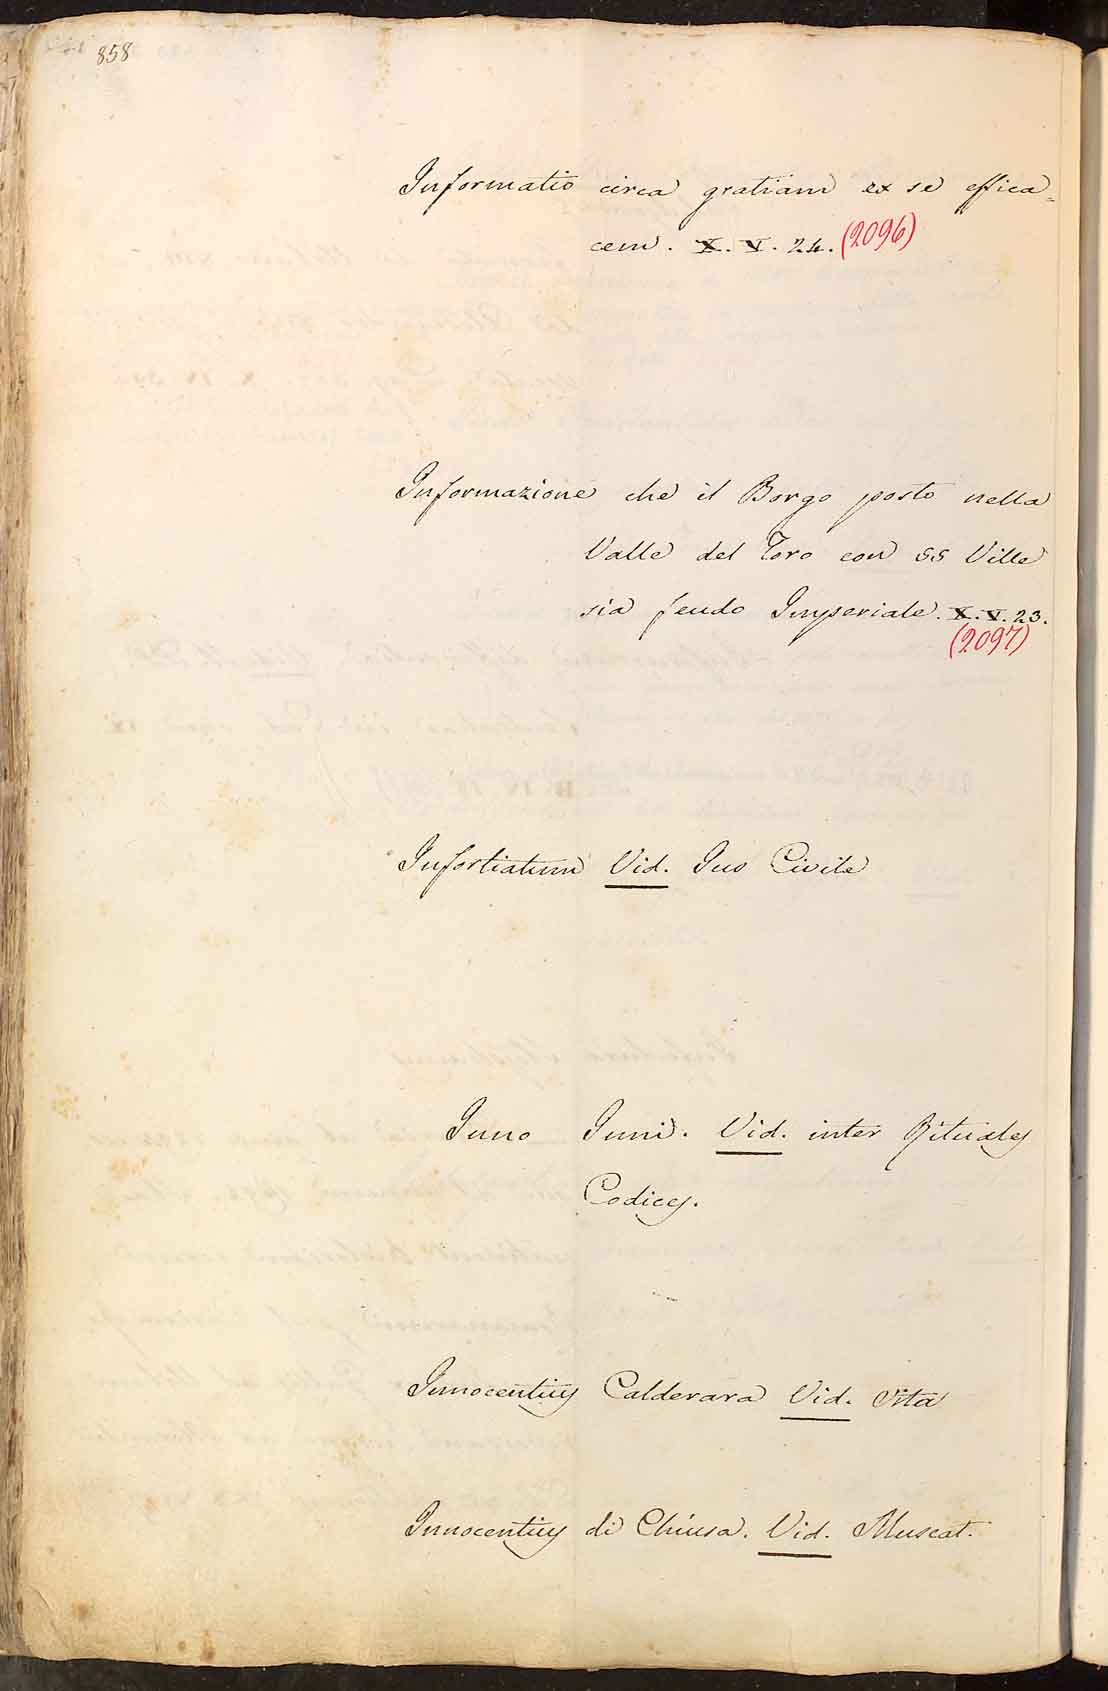 858
Informatio circa gratiam ex se effica=
cem. X. V. 24. (2096)
Informazione che il Borgo posto nella
Valle del Toro con ss Ville
sia feudo Imperiale. X. V. 23.
(2097)
Infortiatum Vid. Jus Civile
Inno Inni. Vid. inter Rituales
Codices.
Innocentius Calderara Vid. Vita
Innocentius di Chiusa. Vid. Muscat.